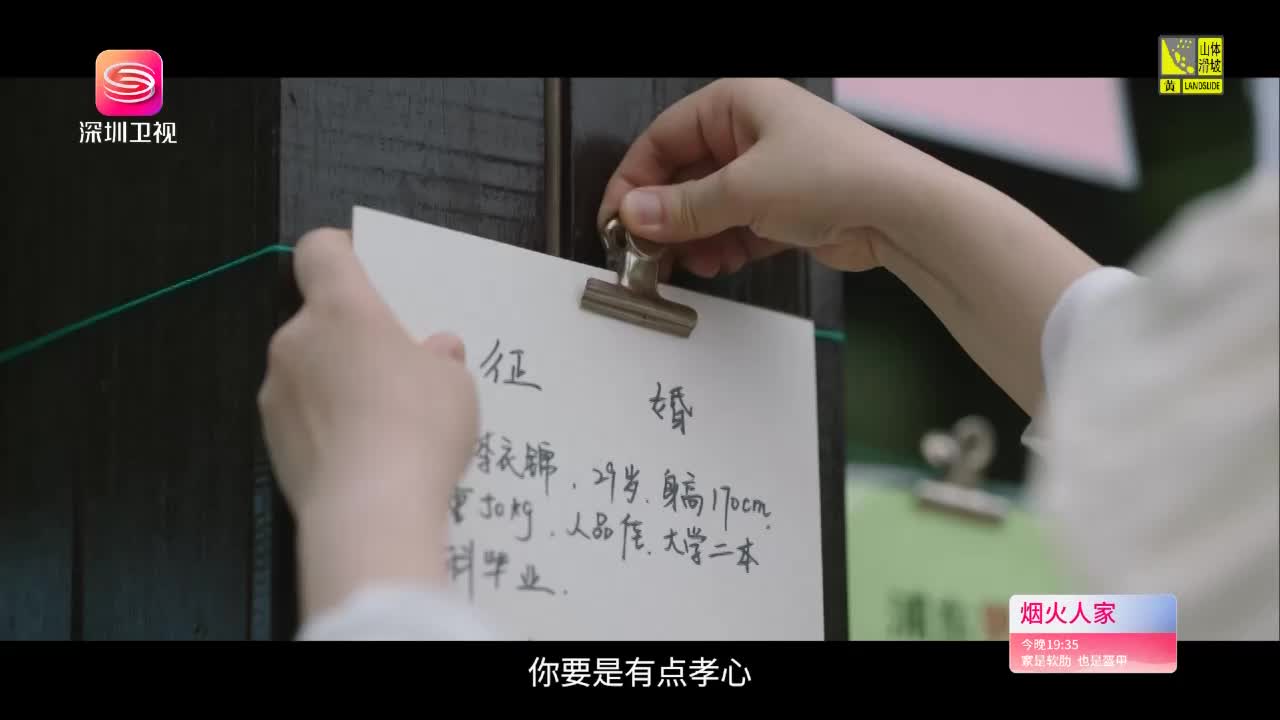 深圳卫视
山体
滑坡
黄 LANDSLIDE
征 婚
李衣锦，29岁、身高170cm，
重50kg，人品佳、大学二本
科毕业。
烟火人家
今晚19:35
家是软肋 也是盔甲
你要是有点孝心